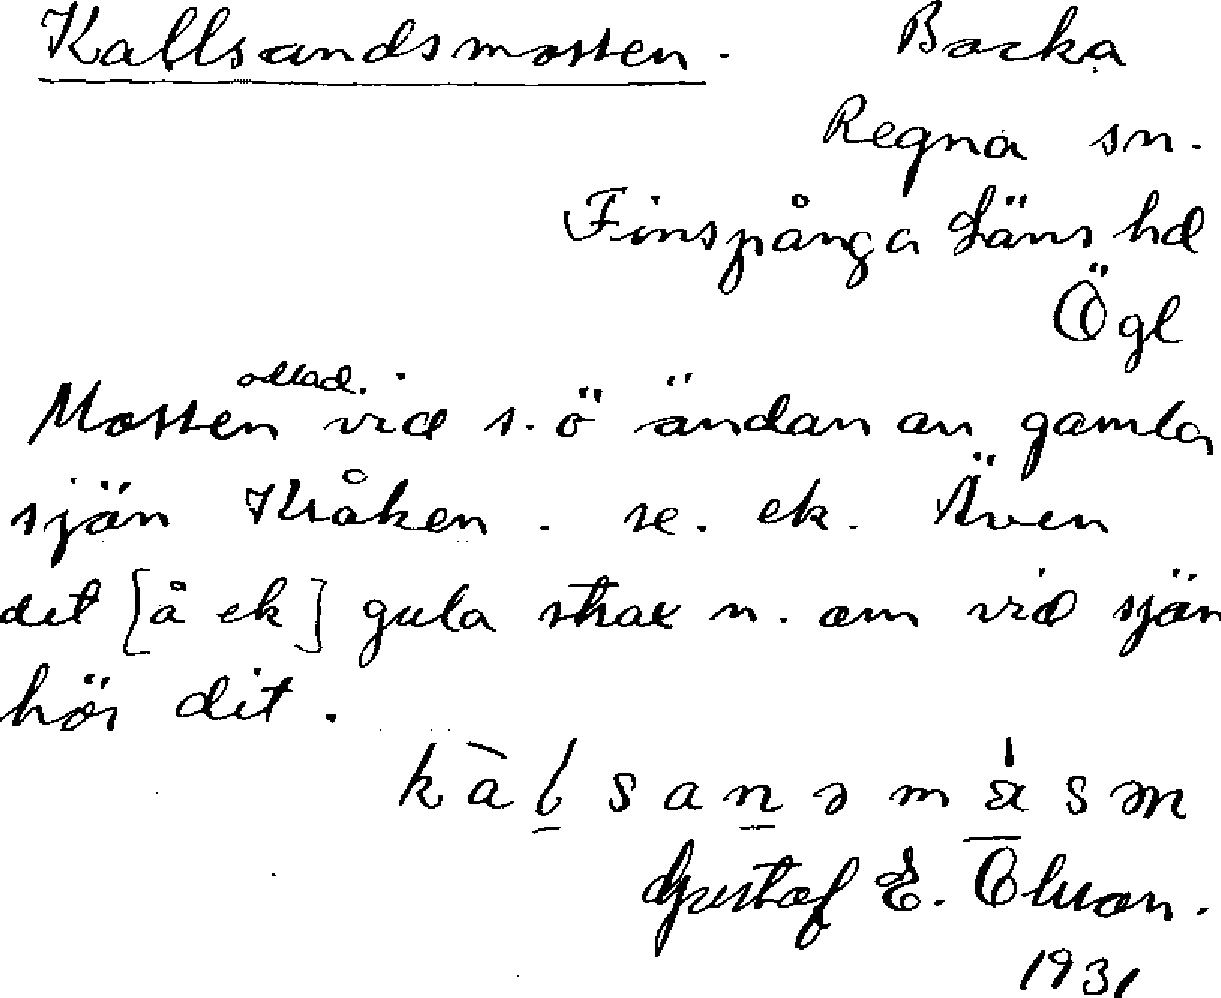 Kallsandsmossen. Backa
Regna sn.
Finspånga Läns hd
Ögl
Mossen vid s.ö ändan av gamla
sjön Kråken. se. ek. Även
det [å ek] gula strax n. om vid sjön
hör dit.
Gustaf E. Olsson.
1931